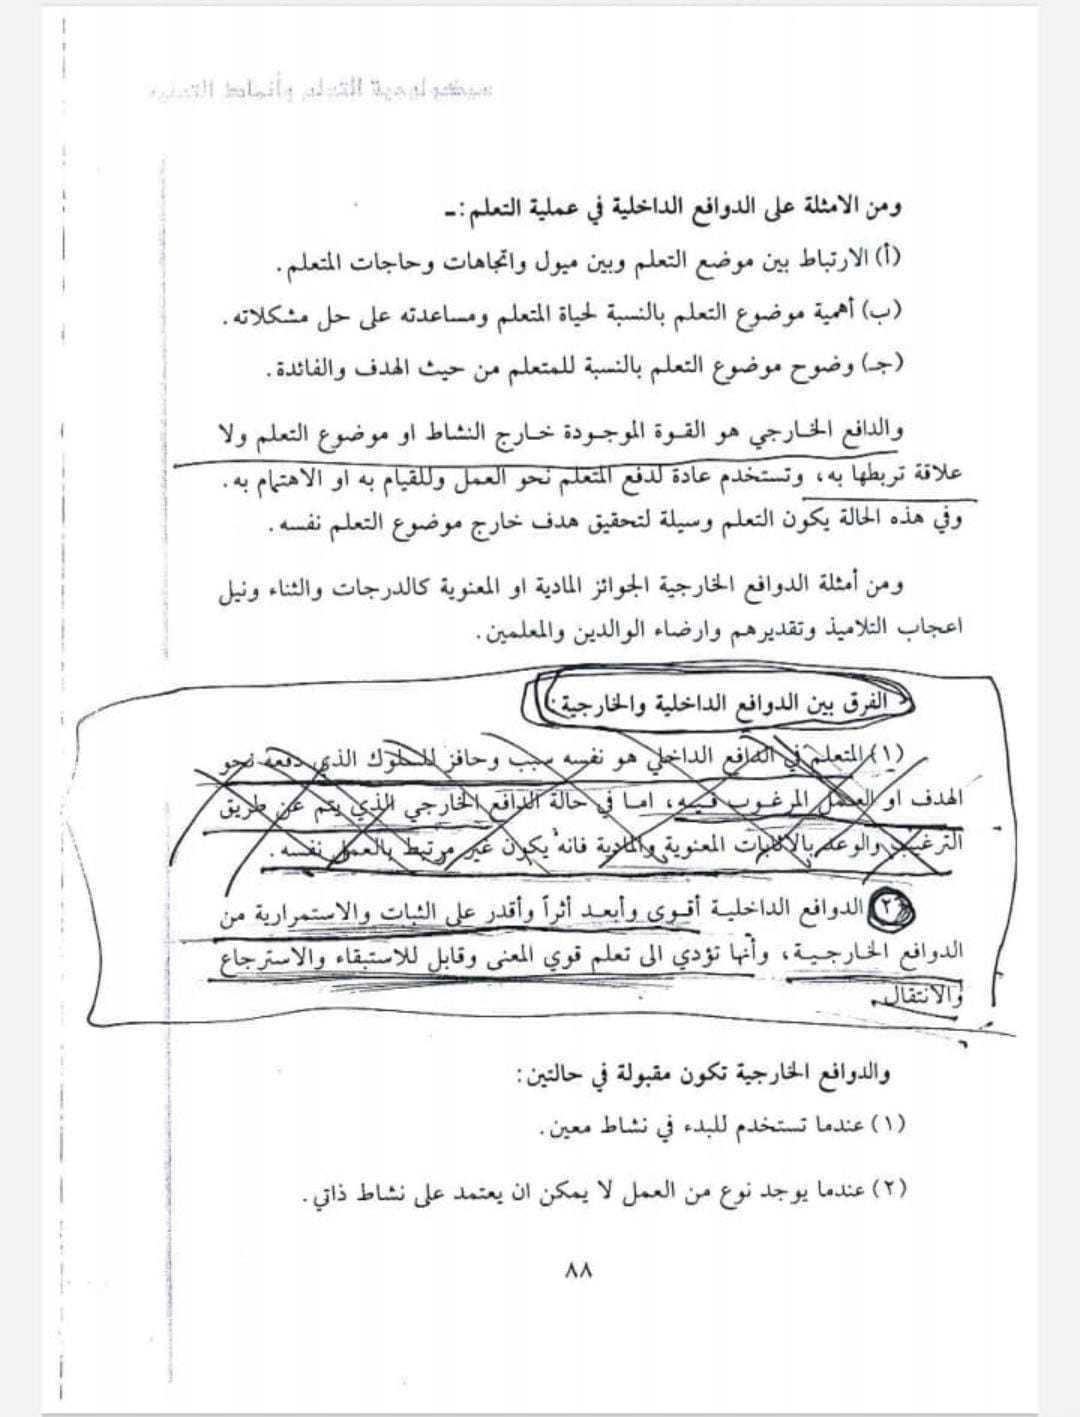 ومن الامثلة على الدوافع الداخلية في عملية التعلم :ـ
(أ) الارتباط بين موضع التعلم وبين ميول واتجاهات وحاجات المتعلم .
(ب) أهمية موضوع التعلم بالنسبة لحياة المتعلم ومساعدته على حل مشكلاته .
(جـ) وضوح موضوع التعلم بالنسبة للمتعلم من حيث الهدف والفائدة .
والدافع الخارجي هو القوة الموجودة خارج النشاط او موضوع التعلم ولا
علاقة تربطها به، وتستخدم عادة لدفع المتعلم نحو العمل وللقيام به او الاهتمام به .
وفي هذه الحالة يكون التعلم وسيلة لتحقيق هدف خارج موضوع التعلم نفسه .
ومن أمثلة الدوافع الخارجية الجوائز المادية او المعنوية كالدرجات والثناء ونيل
اعجاب التلاميذ وتقديرهم وارضاء الوالدين والمعلمين .
الفرق بين الدوافع الداخلية والخارجية :
(١) المتعلم في الدافع الداخلي هو نفسه سبب وحافز للسلوك الذي دفعه نحو
الهدف او العمل المرغوب فيه، اما في حالة الدافع الخارجي الذي يتم عن طريق
الترغيب والوعد بالاثابات المعنوية والمادية فانه يكون غير مرتبط بالعمل نفسه .
(٢) الدوافع الداخلية أقوى وأبعد أثراً وأقدر على الثبات والاستمرارية من
الدوافع الخارجية، وأنها تؤدي الى تعلم قوي المعنى وقابل للاستبقاء والاسترجاع
والانتقال .
والدوافع الخارجية تكون مقبولة في حالتين :
(١) عندما تستخدم للبدء في نشاط معين .
(٢) عندما يوجد نوع من العمل لا يمكن ان يعتمد على نشاط ذاتي .
٨٨